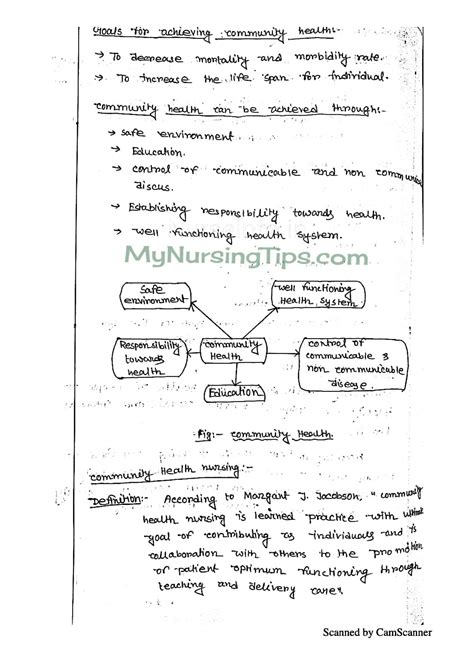 Goals for achieving community health:-
→ To decrease mortality and morbidity rate.
→ To increase the life span for individual.
community health can be achieved through:-
→ safe environment.
→ Education.
→ control of communicable and non communicable
→ Establishing responsibility towards health.
→ well functioning health system.
MyNursingTips.com
safe
environment
well functioning
Health system
Responsibility
towards
health
community
Health
control of
communicable &
non communicable
disease.
Education
Fig:- community Health.
community Health nursing:-
Definition:- According to Margant J. Jacobson, " community
health nursing is learned practice with
goal of contributing as individuals and is
collaboration with others to the promotion
of patient optimum functioning through
teaching and delivery care"
Scanned by CamScanner